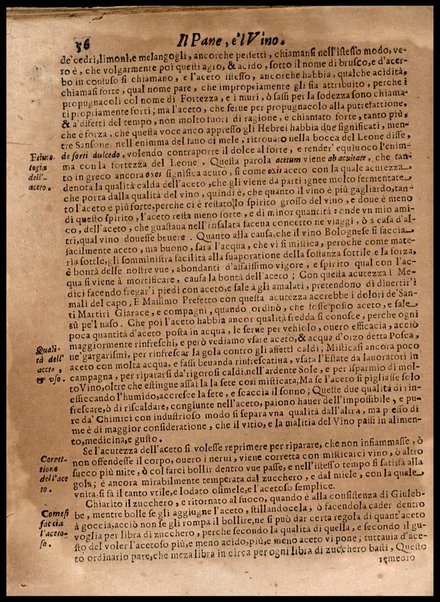 36 Il Pane, e'l Vino.
de' cedri, limoni, e melangogli, ancorche perfetti, chiamansi nell'istesso modo, ve-
ro è, che volgarmente poi questi agro, & acido, sotto il nome di brusco, e d'acer-
bo in confuso si chiamano, e l'aceto istesso, ancorche habbia, qualche acidità,
chiamasi forte, qual nome pare, che impropriamente gli sia attribuito, perche i
propugnacoli col nome di Fortezza, e i muri, ò sassi per la sodezza sono chiama-
ti propriamente forti; ma l'aceto, che serue per propugnacolo alla putrefattione,
& a' difetti del tempo, non molto fuori di ragione, e chiamato forte, tanto più,
che è forza, che questa voce anco appresso gli Hebrei habbia due significati, men-
tre Sansone nell'enimma del fauo di mele, ritrouato nella bocca del Leone disse,
Ethimologia dell'aceto.
de forti dulcedo, volendo contraporre il dolce al forte, e render' equiuoco l'enim-
ma con la fortezza del Leone. Questa parola acetum viene ab acuitate, che tan-
to in greco ancora oxos significa acuto, si come oxis aceto con la quale acutezza,
denota la qualità calda dell'aceto, che gli viene da parti ignee molto fermentate,
che porta dalla qualità del vino, quindi è, che quanto il vino è più gagliardo, tan-
to l'aceto è più forte, perche ci è restato, lo spirito grosso del vino, e doue è meno
di questo spirito, l'aceto resta meno forte, e di minor quantità: onde vn mio ami-
co, dell'aceto, che gustaua nell'insalata faceua concetto ne viaggi, ò a casa d'al-
tri, qual vino douesse beuere. Quanto alla causa, che il vino Bolognese si faccia
facilmente aceto, ma buono, sarà l'acqua, che vi si mistica, perche come mate-
ria sottile, gli somministra facilità alla suaporatione della sostanza sottile, e la forza,
è bontà delle nostre vue, abondanti d'assaissimo vigore, e spirito qual con l'ac-
qua si viene à mortificare, causa la bontà dell'aceto; Con questa acutezza i Me-
dici facendo fregar' i piedi con aceto, e sale à gli amalati, pretendono di diuertir' i
mali del capo; E Massimo Prefetto con questa acutezza accrebbe i dolori de' San-
ti Martiri Giarace, e compagni, quando ordinò, che fosse posto aceto, e sale
sù pe'l naso. Che poi l'aceto habbia ancor qualità fredda si conosce, perche ogni
poca quantità d'aceto posta in acqua, le serue per vehiolo, ouero efficacia, acciò
Qualità dell'aceto, & vso.
maggiormente rinfreschi, e però vediamo vsare aceto, & acqua d'orzo detta Posca,
ne' gargarismi, per rinfrescar la gola contro gli affetti caldi; Misticasi ancora poco
aceto con molta acqua, e fassi beuanda rinfrescatiua, vsata l'Estate da lauoratori in
campagna, per ripararsi da' rigorosi caldi nell'ardente Sole, e per risparmio di mol-
to Vino, oltre che estingue assai la la sete così misticata; Ma se l'aceto si piglia sie solo
essiccando l'humido, accresce la sete, e scaccia il sonno; Queste due qualità di rin-
frescare, ò di riscaldare, congiunte nell'aceto, paiono hauer dell'impossibile, e pu-
re da' Chimici con industrioso modo si separa vna qualità dall'altra, ma per fine di
me è di maggior consideratione, che il vitio, e la malitia del Vino passi in alimen-
to, medicina, e gusto.
Correttione dell'aceto.
Se l'acutezza dell'aceto si volesse reprimere per riparare, che non infiammasse, ò
non offendesse il corpo, ouero i nerui, viene corretta con misticarci vino, ò altro
succo più mite, ò col farci bollir dentro vue passe, e nell'istesso tempo si satisfà alla
gola; è ancora mirabilmente temperata dal zucchero, e dal miele, con la quale
vnità si fà il tanto vtile, e lodato osimele, e l'acetoso semplice.
Come si faccia l'acetoso.
Chiarito il zucchero, e ritornato al fuoco, quando è alla consistenza di Giuleb-
be, mentre bolle se gli aggiugne l'aceto, stillandocela, ò facendola cader dentro
à goccia, acciò non se gli rompa il bollire, ne si può dar certa regola di quant'aceto
voglia per libra di zucchero, perche secondo la qualità di quella, e secondo il gu-
sto del voler l'acetoso più, e meno acido, più, e meno aceto vi pone; tuttauia d'ace-
to ordinario pare, che meza libra in circa per ogni libra di zucchero basti, Questo
remedio